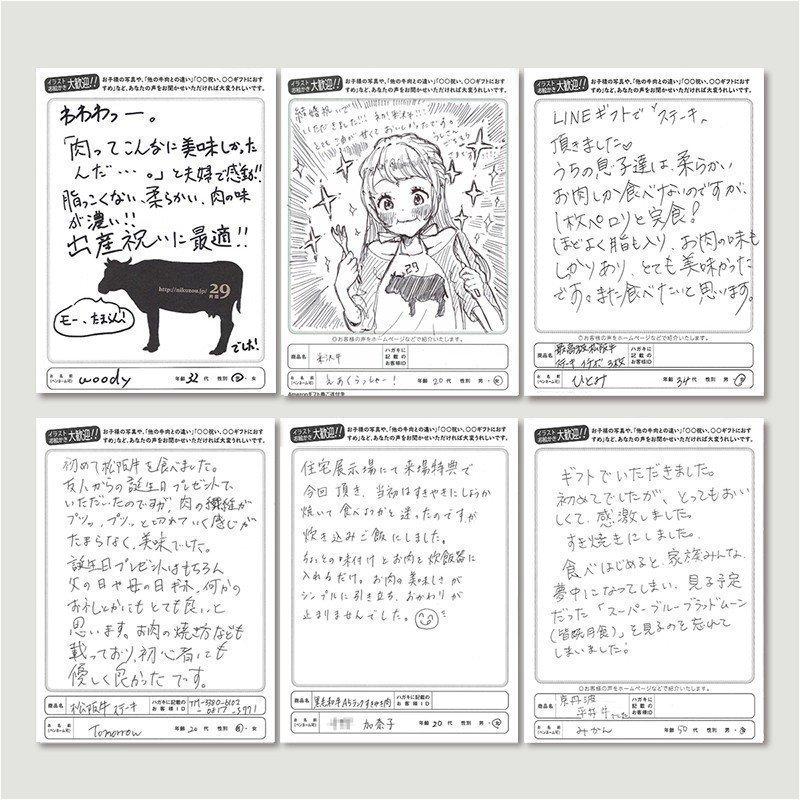 イラストお絵かき 大歓迎!! お子様の写真や、「他の牛肉との違い」「〇〇祝い、〇〇ギフトにおすすめ」など、あなたの声をお聞かせいただければ大変うれしいです。
わわわっー。
「肉ってこんなに美味しかった
んだ…。」と夫婦で感動!!
脂っこくない、柔らかい、肉の味
が濃い!!
出産祝いに最適!!
http://nikuzou.jp/ 29
モー、たまらん!
でした!
お名前(ペンネーム可) woody 年齢 32 代 性別 男・女
イラストお絵かき 大歓迎!! お子様の写真や、「他の牛肉との違い」「〇〇祝い、〇〇ギフトにおすすめ」など、あなたの声をお聞かせいただければ大変うれしいです。
結婚祝いで
いただきました!!!
とても油が甘くておいしかったです。
29
◎お客様の声をホームページなどで紹介いたします。
商品名 米沢牛 ハガキに記載のお客様ID
お名前(ペンネーム可) 年齢 20 代 性別 男・女
イラストお絵かき 大歓迎!! お子様の写真や、「他の牛肉との違い」「〇〇祝い、〇〇ギフトにおすすめ」など、あなたの声をお聞かせいただければ大変うれしいです。
LINEギフトで"ステーキ"
頂きました♡
うちの息子達は、柔らかい
お肉しか食べないのですが、
1枚ペロリと完食!
ほどよく脂も入り、お肉の味も
しかりあり、とても美味かった
です。また食べたいと思います。
◎お客様の声をホームページなどで紹介いたします。
商品名 最高級松阪牛
ステーキ イチボ 3枚 ハガキに記載のお客様ID
お名前(ペンネーム可) ひとみ 年齢 34 代 性別 男・女
イラストお絵かき 大歓迎!! お子様の写真や、「他の牛肉との違い」「〇〇祝い、〇〇ギフトにおすすめ」など、あなたの声をお聞かせいただければ大変うれしいです。
初めて松阪牛を食べました。
友人からの誕生日プレゼントで
いただいたのですが、肉の繊維が
プツッ、プツッと切れていく感じが
たまらなく、美味でした。
誕生日プレゼントはもちろん
父の日や母の日ギフト、何かの
お礼とかにもとても良いと
思います。お肉の焼き方なども
載っており、初心者にも
優しく良かったです。
商品名 松阪牛ステーキ ハガキに記載のお客様ID
お名前(ペンネーム可) Tomorrow 年齢 20 代 性別 男・女
イラストお絵かき 大歓迎!! お子様の写真や、「他の牛肉との違い」「〇〇祝い、〇〇ギフトにおすすめ」など、あなたの声をお聞かせいただければ大変うれしいです。
住宅展示場にて来場特典で
今回頂き、当初はすきやきにしようか
焼いて食べようかと迷ったのですが
炊き込みご飯にしました。
ちょっとの味付けとお肉を炊飯器に
入れるだけ。お肉の美味しさが
シンプルに引き立ち、おかわりが
止まりませんでした。
商品名 黒毛和牛A5ランクすきやき肉 ハガキに記載のお客様ID
お名前(ペンネーム可) 加奈子 年齢 20 代 性別 男・女
イラストお絵かき 大歓迎!! お子様の写真や、「他の牛肉との違い」「〇〇祝い、〇〇ギフトにおすすめ」など、あなたの声をお聞かせいただければ大変うれしいです。
ギフトでいただきました。
初めてでしたが、とってもおい
しくて、感激しました。
すき焼きにしました。
食べはじめると、家族みんな、
夢中になってしまい、見る予定
だった「スーパーブルーブラッドムーン
(皆既月食)」を見るのを忘れて
しまいました!
◎お客様の声をホームページなどで紹介いたします。
商品名 京丹波
平井牛 ハガキに記載のお客様ID
お名前(ペンネーム可) みかん 年齢 50 代 性別 男・女